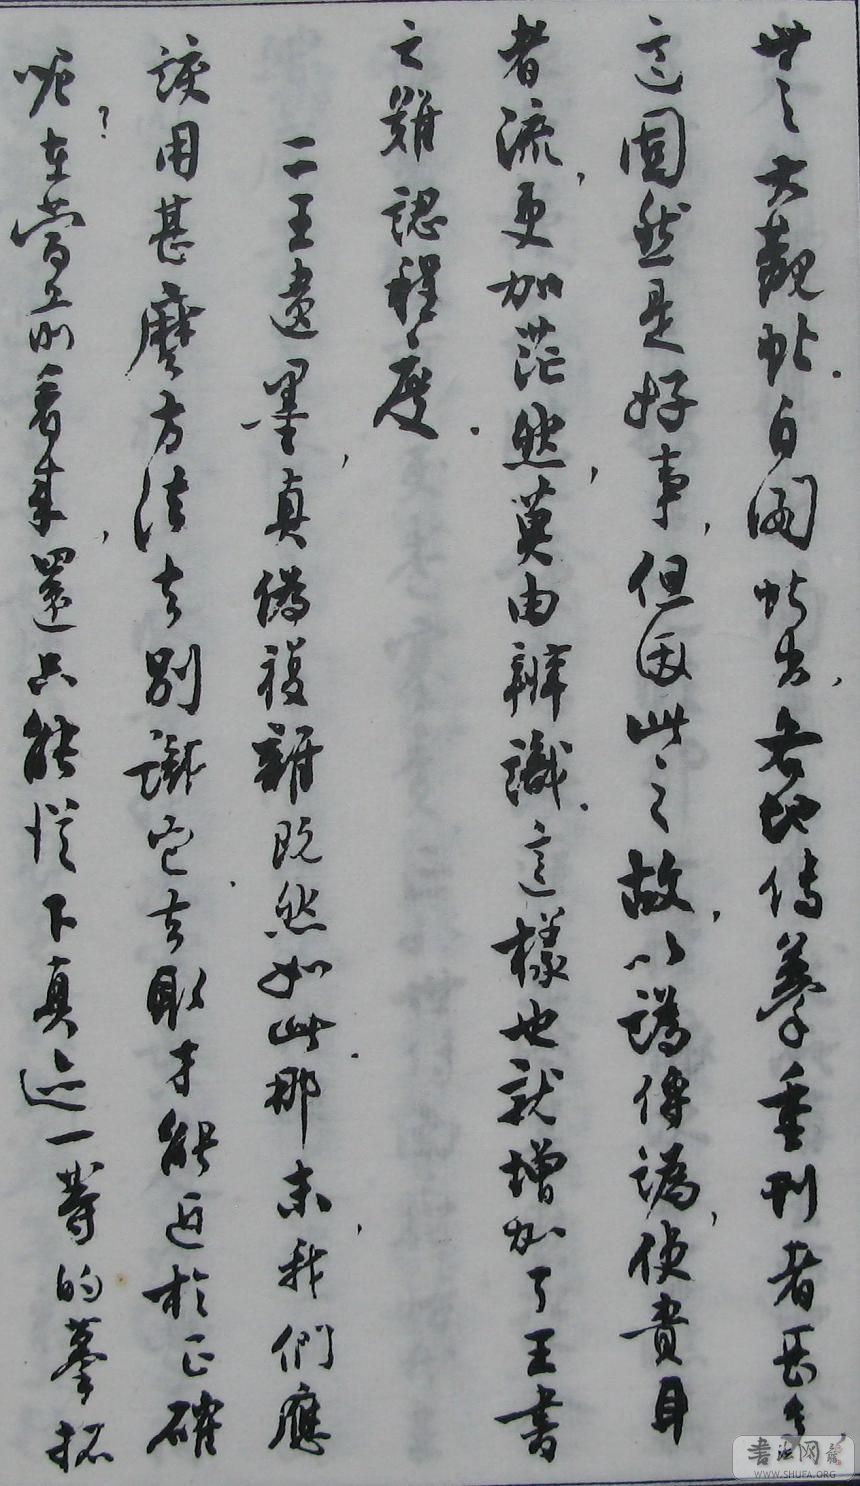 世之大觀帖.自閣帖出,各地傳摹重刊者甚多,
這固然是好事,但因此之故,以譌傳譌,使貴耳
者流,更加茫然,莫由辨識.這樣也就增加了王書
之難認程度.
二王遺墨,真偽複雜既然如此.那末,我們應
該用甚麽方法去別識它.去取才能近於正確
呢?在當前看來,還只能從下真迹一等的摹拓
书法网
WWW.SHUFA.ORG